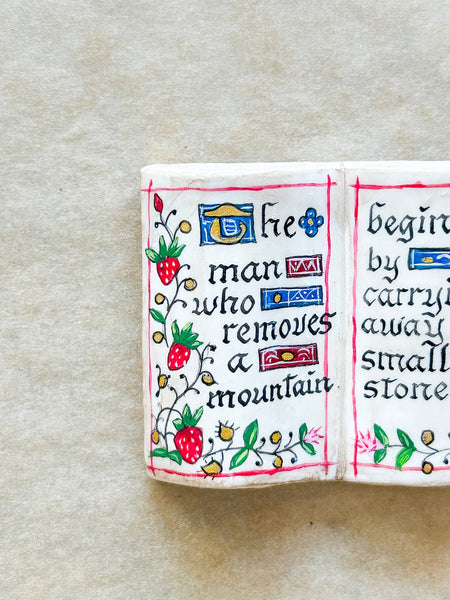 The
man
who
removes
a
mountain
begin
by
carryi
away
small
stone